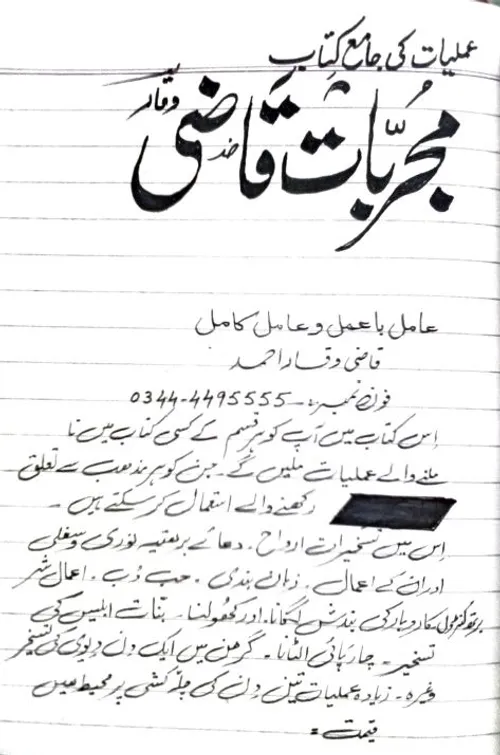 عملیات کی جامع کتاب
مجرّبات قاضی وقار احمد
عامل باعمل و عامل کامل
قاضی وقار احمد
فون نمبر:۔ 0344-4495555
اِس کتاب میں آپ کو ہر قسم کے کسی کتاب میں نا
ملنے والے عملیات ملیں گے۔ جن کو ہر مذھب سے تعلق
رکھنے والے استعمال کر سکتے ہیں۔
اِس میں تسخیرات ارواح۔ دعائے برھتیہ نوری و سفلی
اور ان کے اعمال۔ زبان بندی۔ حب دُب۔ اعمال شر
برتھ کنٹرول کاروبار کی بندش لگانا۔ اور کھولنا۔ بنات ابلیس کی
تسخیر۔ چارپائی الٹانا۔ گرھن میں ایک دن دیوی کی تسخیر
وغیرہ۔ زیادہ عملیات تین دِن کی چلّہ کشی پر محیط ہیں
قیمت =